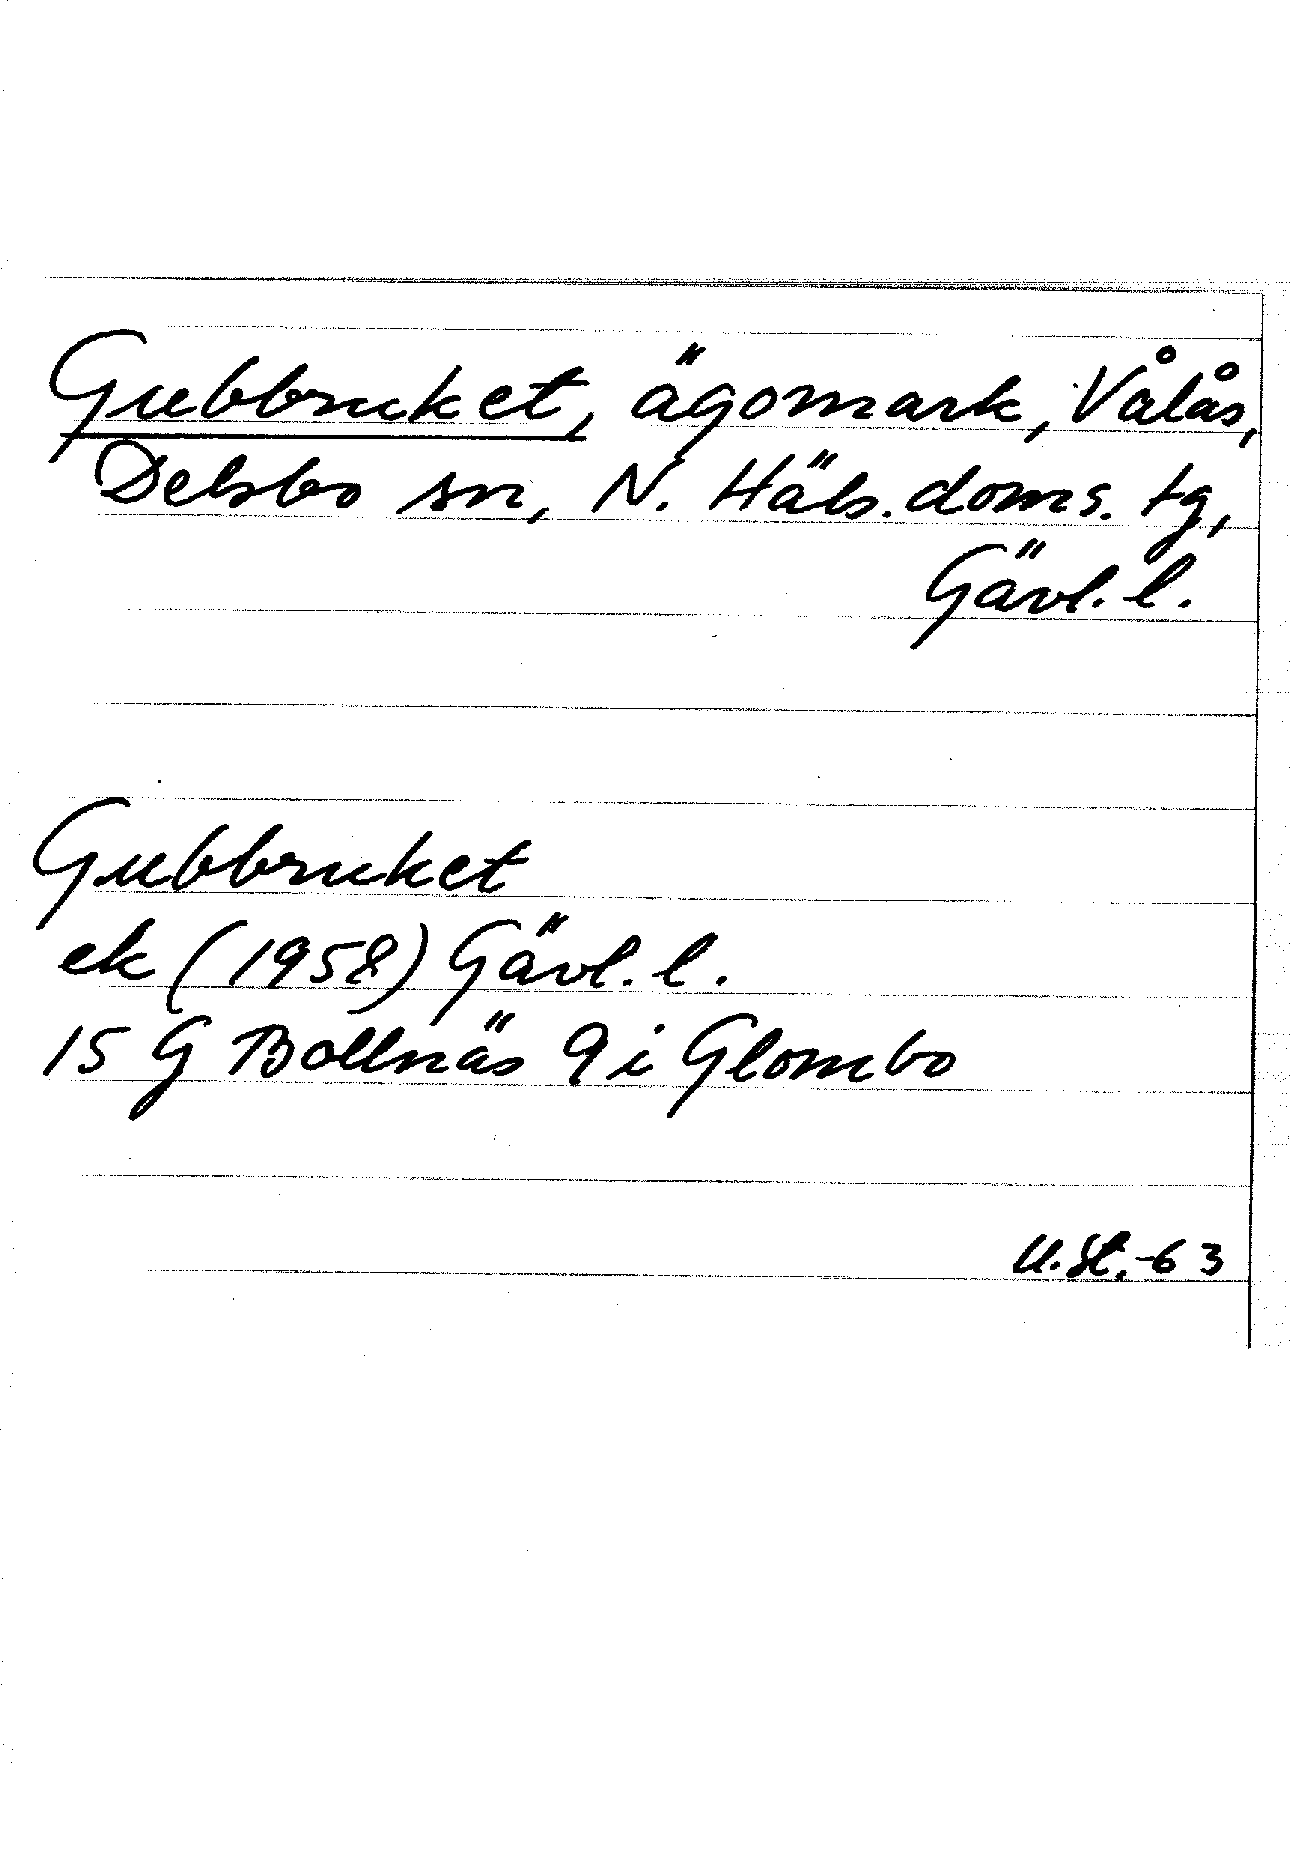 Gubbruket, ägomark, Vålås,
Delsbo sn, N. Häls. doms. tg,
Gävl. l.
Gubbruket
ek (1958) Gävl. l.
15 G Bollnäs 9 i Glombo
U. St. -63